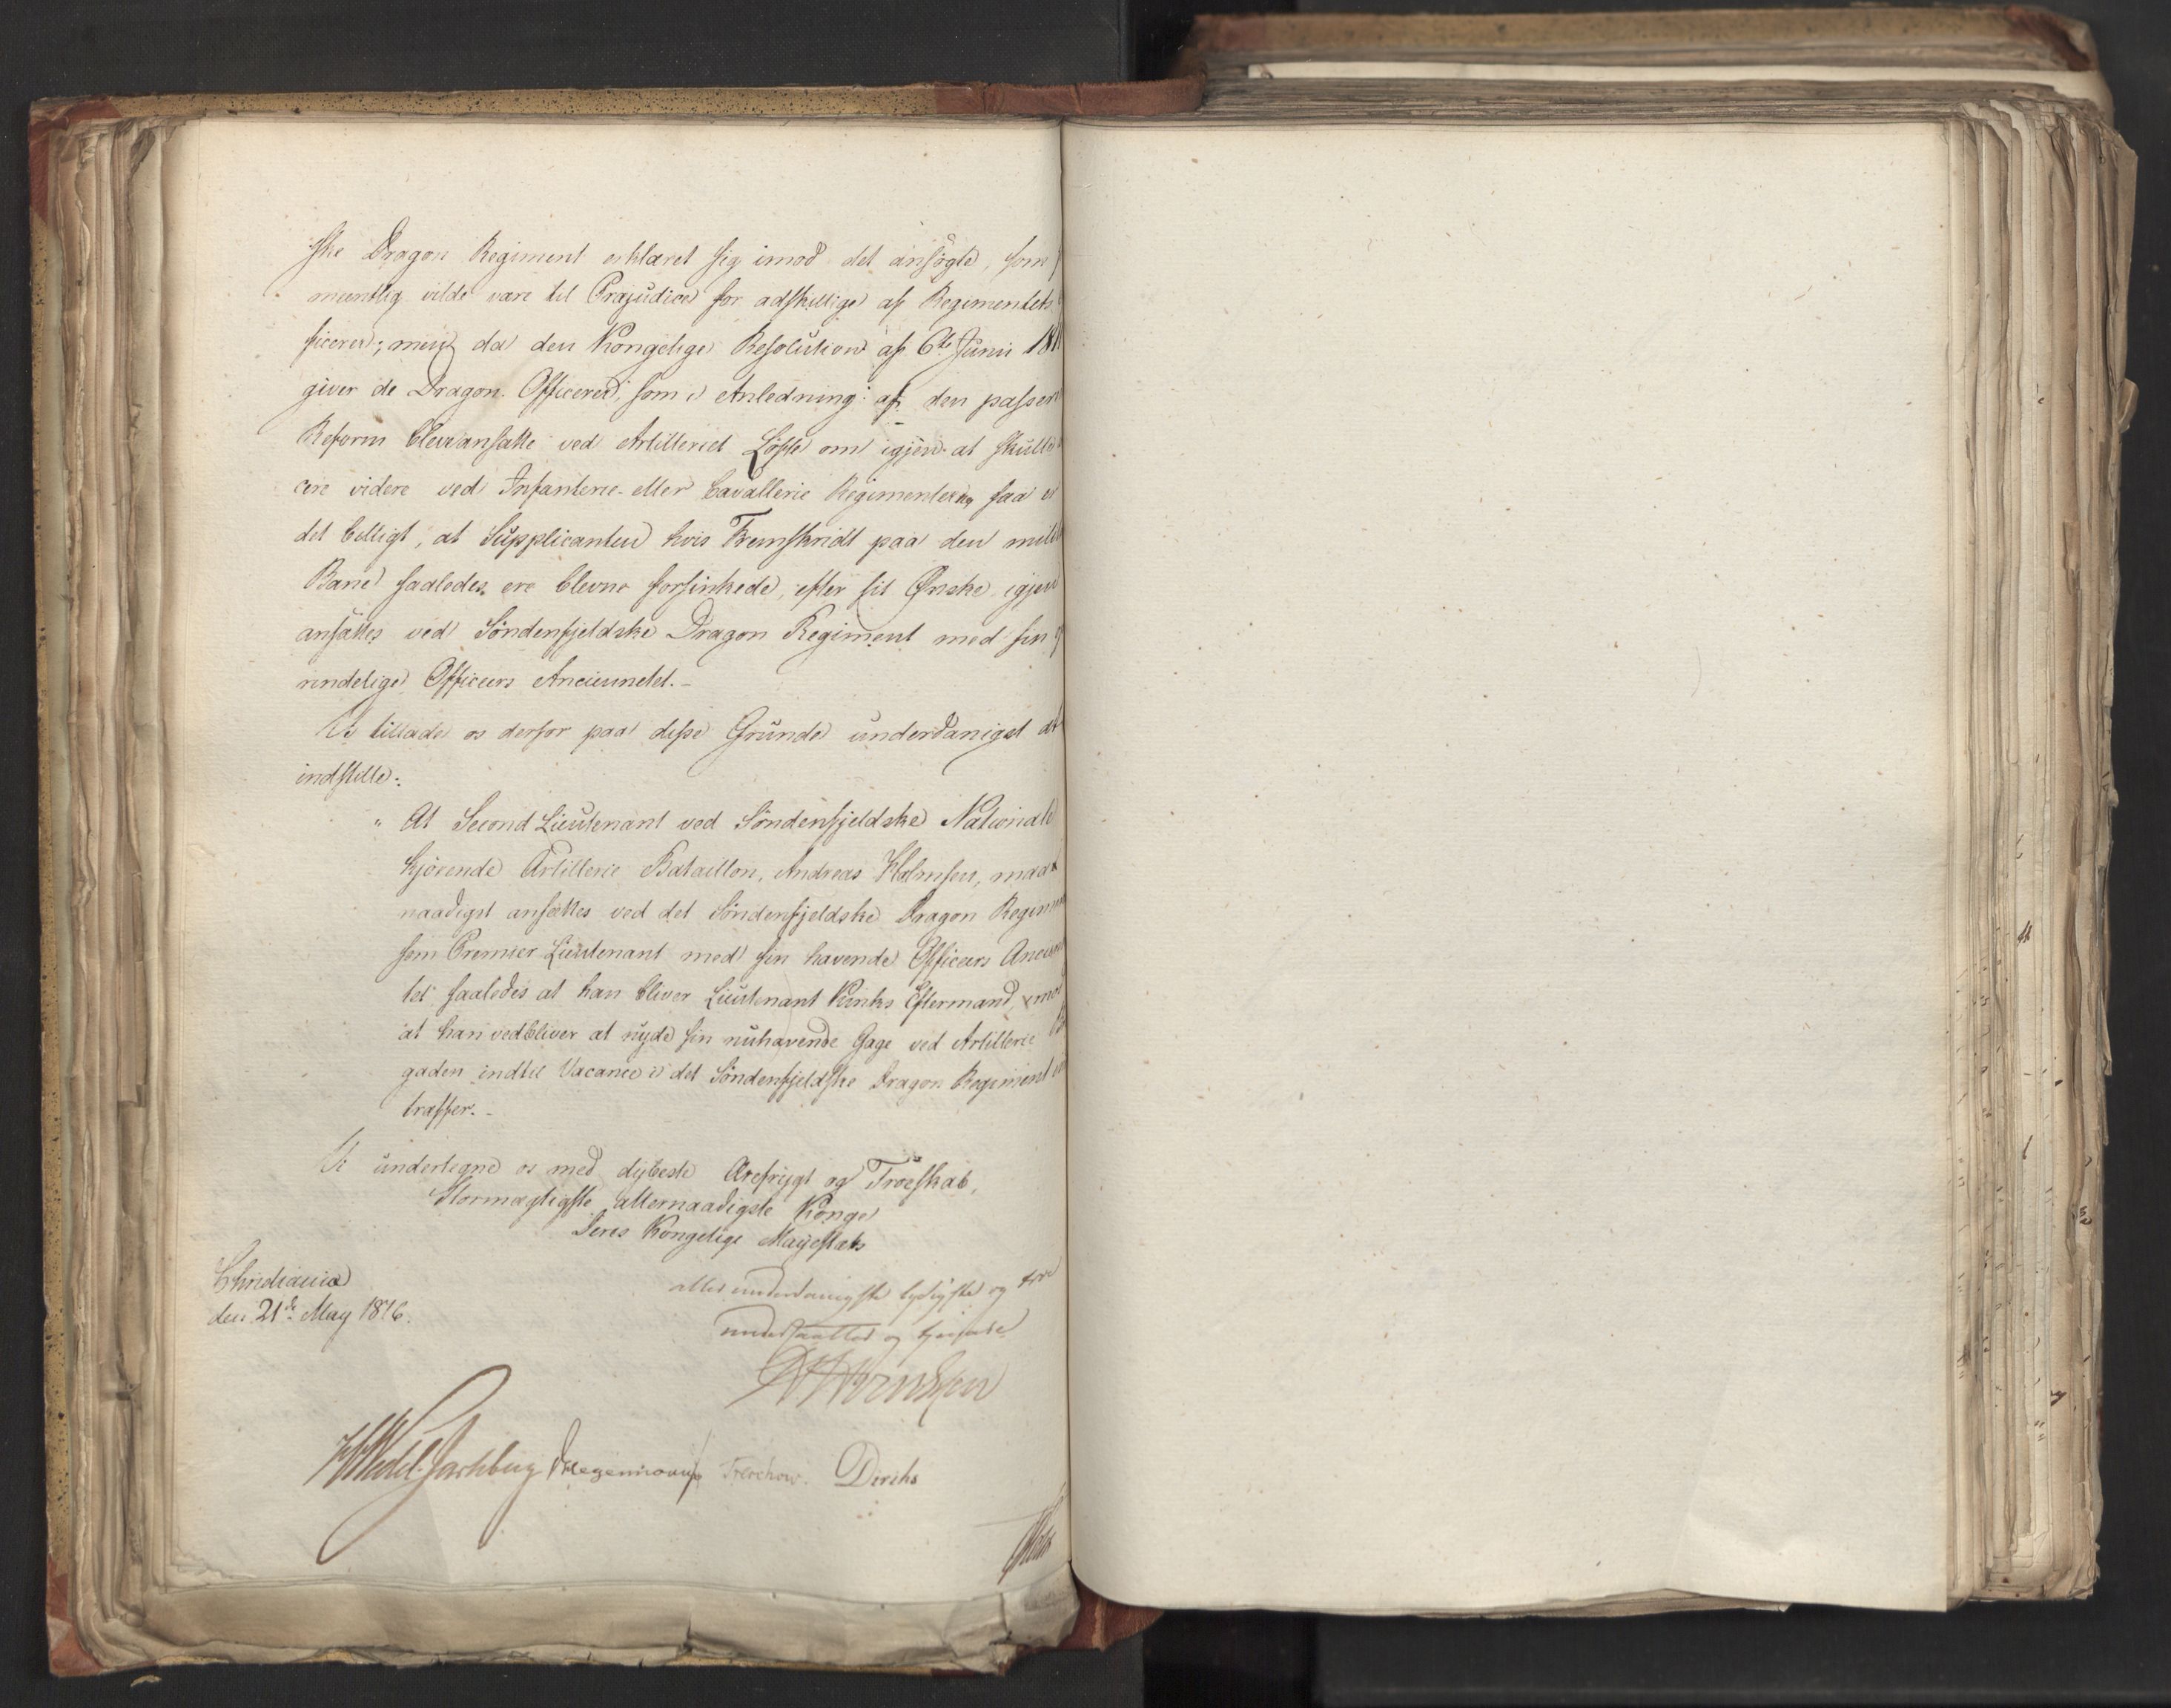 ske Dragon Regiment erklæret sig imod det ansögte, som
meentlig vilde være til Præjudice for adskillige af Regimentets
ficerer; men da den Kongelige Resolution af 6te Junii 181
giver de Dragon Officerer, som i Anledning af den passer
Reform bleve ansatte ved Artilleriet Löfte om igjen at skulle
cere videre ved Infanterie eller Cavallerie Regimenterne, saa er
det billigt, at Supplicanten hvis Fremskridt paa den mili
Bane saaledes ere blevne forsinkede, efter sit Ønske igjen
ansættes ved Söndenfjeldske Dragon Regiment med sin
rindelige Officeers Anciennetet.-
Vi tillade os derfor paa disse Grunde underdanigst at
indstille:
" At Second Lieutenant ved Söndenfjeldske Nationale
kjörende Artillerie Bataillon, Andreas Holmsen, maa
naadigst ansættes ved det Söndenfjeldske Dragon Regim
som Premier Lieutenant med sin havende Officeers Ancien
tet saaledes at han bliver Lieutenant Eftermand, mod
at han vedbliver at nyde sin nuhavende Gage ved Artillerie
gaden indtil Vacance i det Söndenfjeldske Dragon Regiment
træffer.-
Vi undertegne os med dybeste Ærefrygt og Troeskab,
Stormægtigste allernaadigste Konge
Deres Kongelige Majestæts
Christiania
den 21de May 1816.
allerunderdanigste lydigste og troe
undersaatter og tjenere
Wedel Jarlsberg Treschow. Diriks